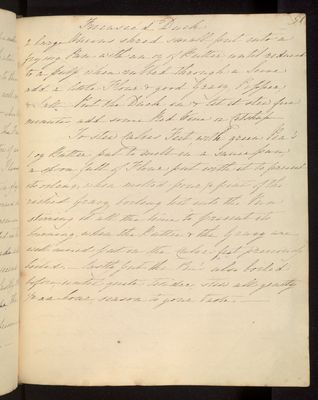 Fricaseed Duck
2 large Onions shred small put into a
frying Pan with an oz of Butter until reduced
to a pulp when rubbed through a Sieve
add a little Flour & good Gravy Pepper
& Salt put the Duck in & let it stew five
minutes add some Red Wine or Catshup
To stew Calves Feet with green Pea's
1 oz Butter put to melt in a sauce pan
a spoon full of Flour put with it to prevent
its when melted pour ½ pint of the
richest Gravy boiling hot into the Pan
stirring it all the time to prevent its
burning, when the Butter & the Gravy are
well mixed put in the Calves feet previously
boiled. — Lastly put the Pea's also boiled
before under quite tender, stew all gently
for an hour season to your taste. —